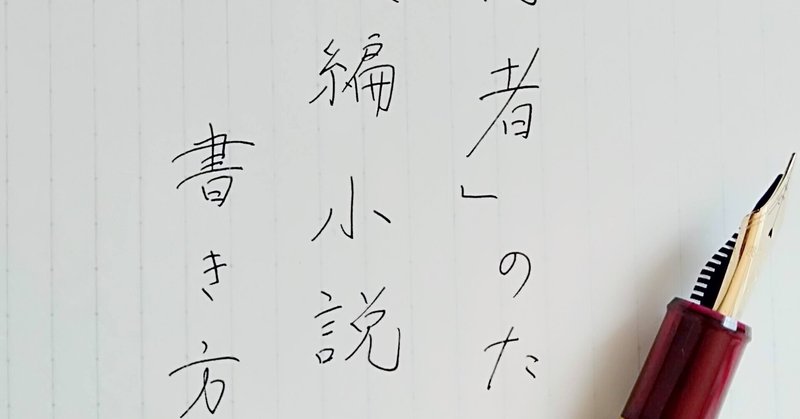 者」のた
編小説
書き方